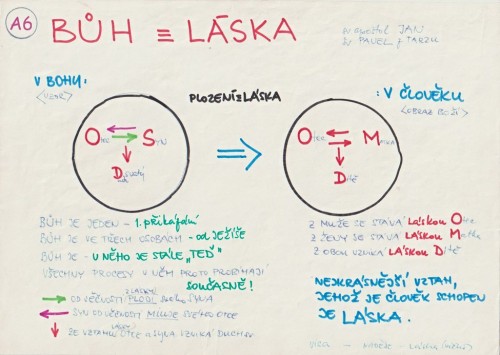 A6
BŮH ≡ LÁSKA
sv. apoštol JAN
sv. PAVEL z TARZU
V BOHU:
<VZOR>
PLOZENÍ≡LÁSKA
: V ČLOVĚKU
<OBRAZ BOŽÍ>
OTEC SYN
DUCH SVATÝ
OTEC MATKA
DÍTĚ
BŮH JE JEDEN - 1. přikázání
BŮH JE VE TŘECH OSOBÁCH - od JEŽÍŠE
BŮH JE - U NĚHO JE STÁLE „TEĎ"
VŠECHNY PROCESY V NĚM PROTO PROBÍHAJÍ
SOUČASNĚ!
OD VĚČNOSTI PLODÍ SVÉHO SYNA
SYN OD VĚČNOSTI MILUJE SVÉHO OTCE
ZE VZTAHU OTCE a SYNA VZNIKÁ DUCH SV.
Z MUŽE SE STÁVÁ LÁSKOU OTEC
Z ŽENY SE STÁVÁ LÁSKOU MATKA
Z OBOU VZNIKÁ LÁSKOU DÍTĚ
NEJKRÁSNĚJŠÍ VZTAH,
JEHOŽ JE ČLOVĚK SCHOPEN
JE LÁSKA.
VÍRA - NADĚJE - LÁSKA